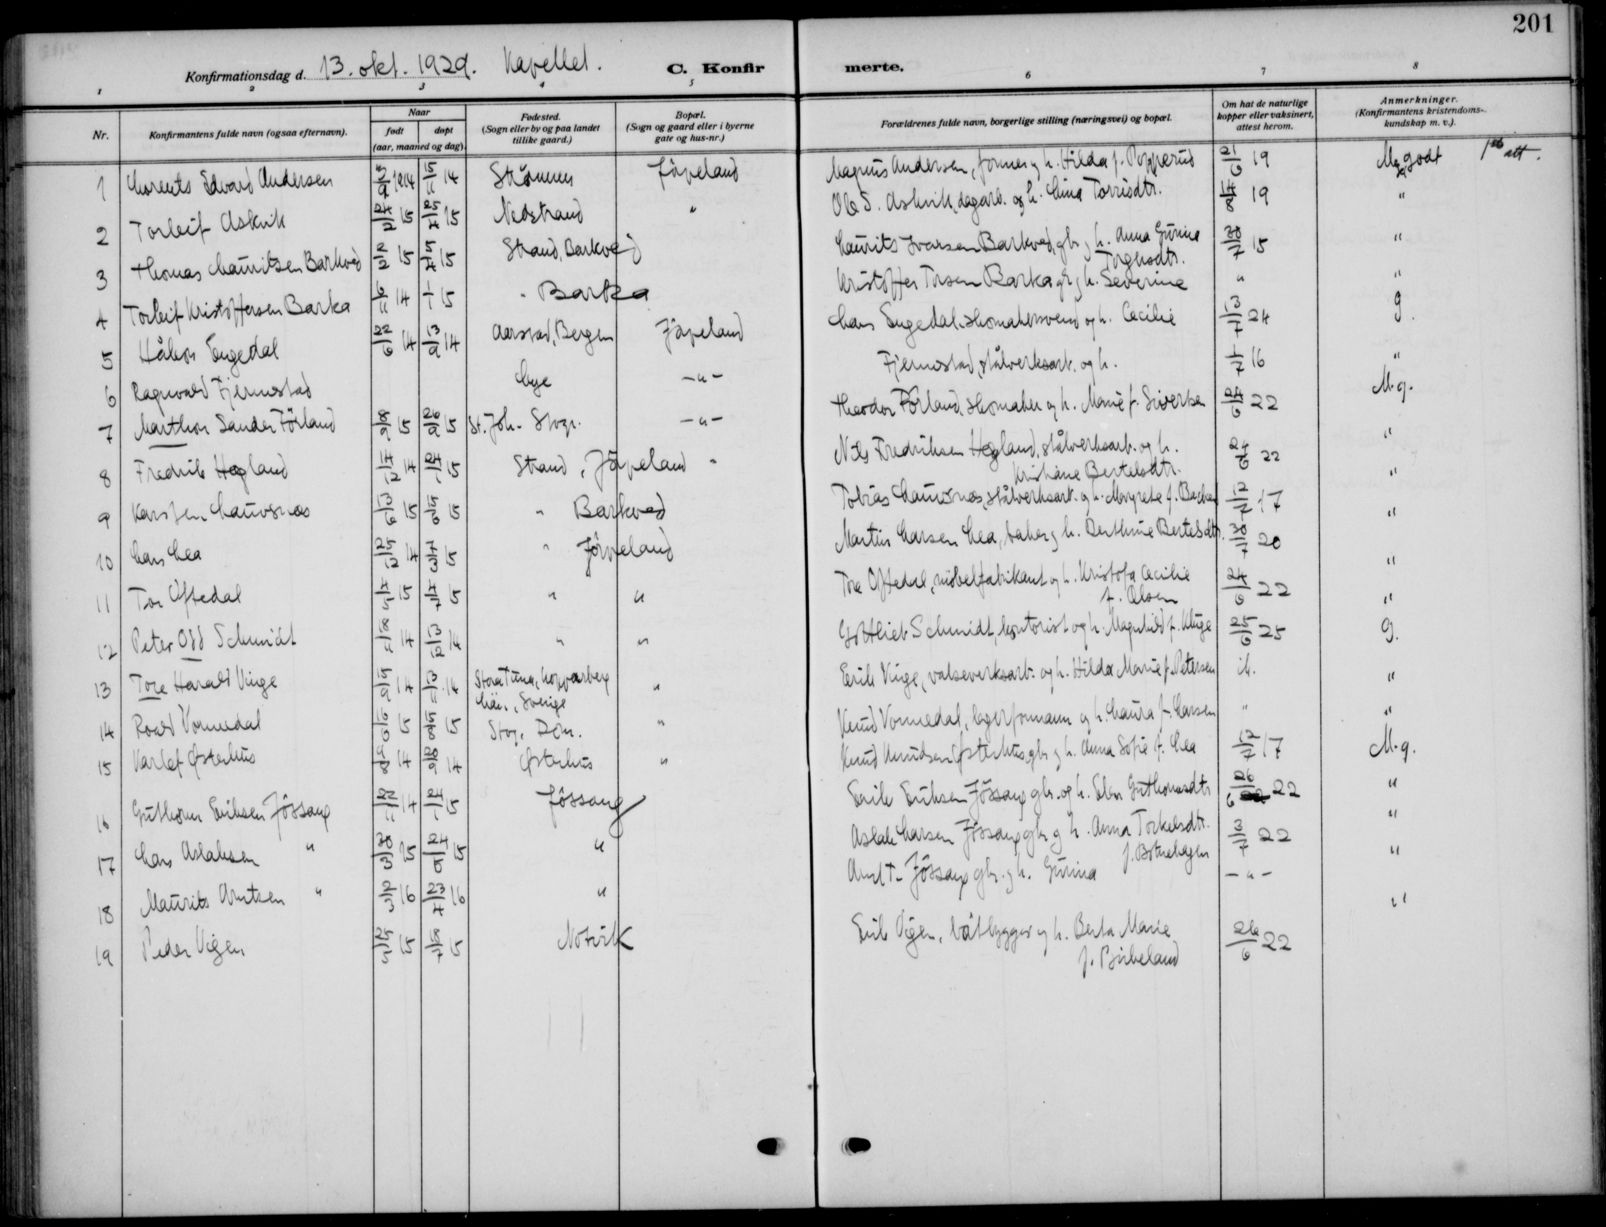 201
Konfirmationsdag d. 13. okt. 1929. Kapellet. C. Konfirmerte.
1 2 3 4 5 6 7 8
Nr.
Konfirmantens fulde navn (ogsaa efternavn).
Naar
født døpt
(aar, maaned og dag).
Fødested.
(Sogn eller by og paa landet
tillike gaard.)
Bopæl.
(Sogn og gaard eller i byerne
gate og hus-nr.)
Forældrenes fulde navn, borgerlige stilling (næringsvei) og bopæl.
Om hat de naturlige
kopper eller vaksinert,
attest herom.
Anmerkninger.
(Konfirmantens kristendoms-
kundskap m. v.).
1 Laurents Edvard Andersen 1914 14 Strømm Jöpeland Magnus Andersen, former og h. Hilda f. Popperud 21/6 19 Mg godt
2 Torleif Askvik 24/2 15 25/4 15 Nedstrand " Ole S. Askvik, dagarb. og h. Lina Torrisdtr. 14/8 19 "
3 Thomas Lauritsen Barkved 2/2 15 5/4 15 Strand, Barkved Laurits Ivarsen Barkved, gbr. og h. Anna Gurine 28/7 15 "
Torgersdtr.
4 Torleif Kristoffersen Barka 6/11 14 1/1 15 " Barka Kristoffer Torsen Barka gbr. og h. Severine " "
5 Håkon Engedal 22/6 14 13/9 14 Aarstad, Bergen Jöpeland Lars Engedal, skomakersvend og h. Cecilie 13/7 24 g.
6 Ragnvald Fjermestad Lye -"- Fjermestad, stålverksarb. og h. 1/7 16 "
7 Marthon Sander Förland 8/9 15 26/9 15 St. Joh. Stvgr. -"- Theodor Förland, skomaker og h. Marie f. Sivertsen 24/6 22 M.g.
8 Fredrik Hegland 14/12 14 24/1 15 Strand, Jöpeland " Nils Fredriksen Hegland, stålverksarb. og h. 24/6 22 "
Kristiane Bertelsdtr.
9 Karsten Lauvsnes 13/6 15 15 " Barkved Tobias Lauvsnes, stålverksarb. og h. Margrete f. 12/7 17 "
10 Lars Lea 25/12 14 15 " Jöpeland Martin Larsen Lea, baker og h. Berthine Bertelsdtr. 30/7 20 "
11 Tor Oftedal 4/5 15 4/7 15 " " Tore Oftedal, möbelfabrikant og h. Kristofa Cecilie 24/6 22 "
f. Olsen
12 Peter Odd Schmidt 14 13/12 14 " " Gottlieb Schmidt, kontorist og h. Magnhild f. Kluge 25/6 25 "
13 Tore Harald Vinge 14 14 Stora Tuna, Kopparberg " Erik Vinge, valseverksarb. og h. Hilda Marie f. Petersen ib. g.
Län., Sverige
14 Roald Vormedal 15 15 Stvg. Dom. " Knud Vormedal, lagerformann og h. Laura f. Larsen " "
15 Karlef Østerhus 14 14 Østerhus " Knud Knudsen Østerhus, gbr. og h. Anna Sofie f. Lea 12/7 17 M.g.
16 Guthorm Eriksen Jössang 22/11 14 24/1 15 Jössang Erik Eriksen Jössang gbr. og h. Elen Guthormsdtr. 26/6 22 "
17 Lars Aslaksen " 30/3 15 24/5 15 " Aslak Larsen Jössang gbr. og h. Anna Torkelsdtr. 3/7 22 "
f. Botnehagen
18 Maurits Arntsen " 16 23/4 16 " Arnt T. Jössang gbr. og h. Gurina -"- "
19 Peder Vigen 15 18/7 15 Notvik Erik Vigen, båtbygger og h. Berta Marie 26/6 22 "
f. Birkeland